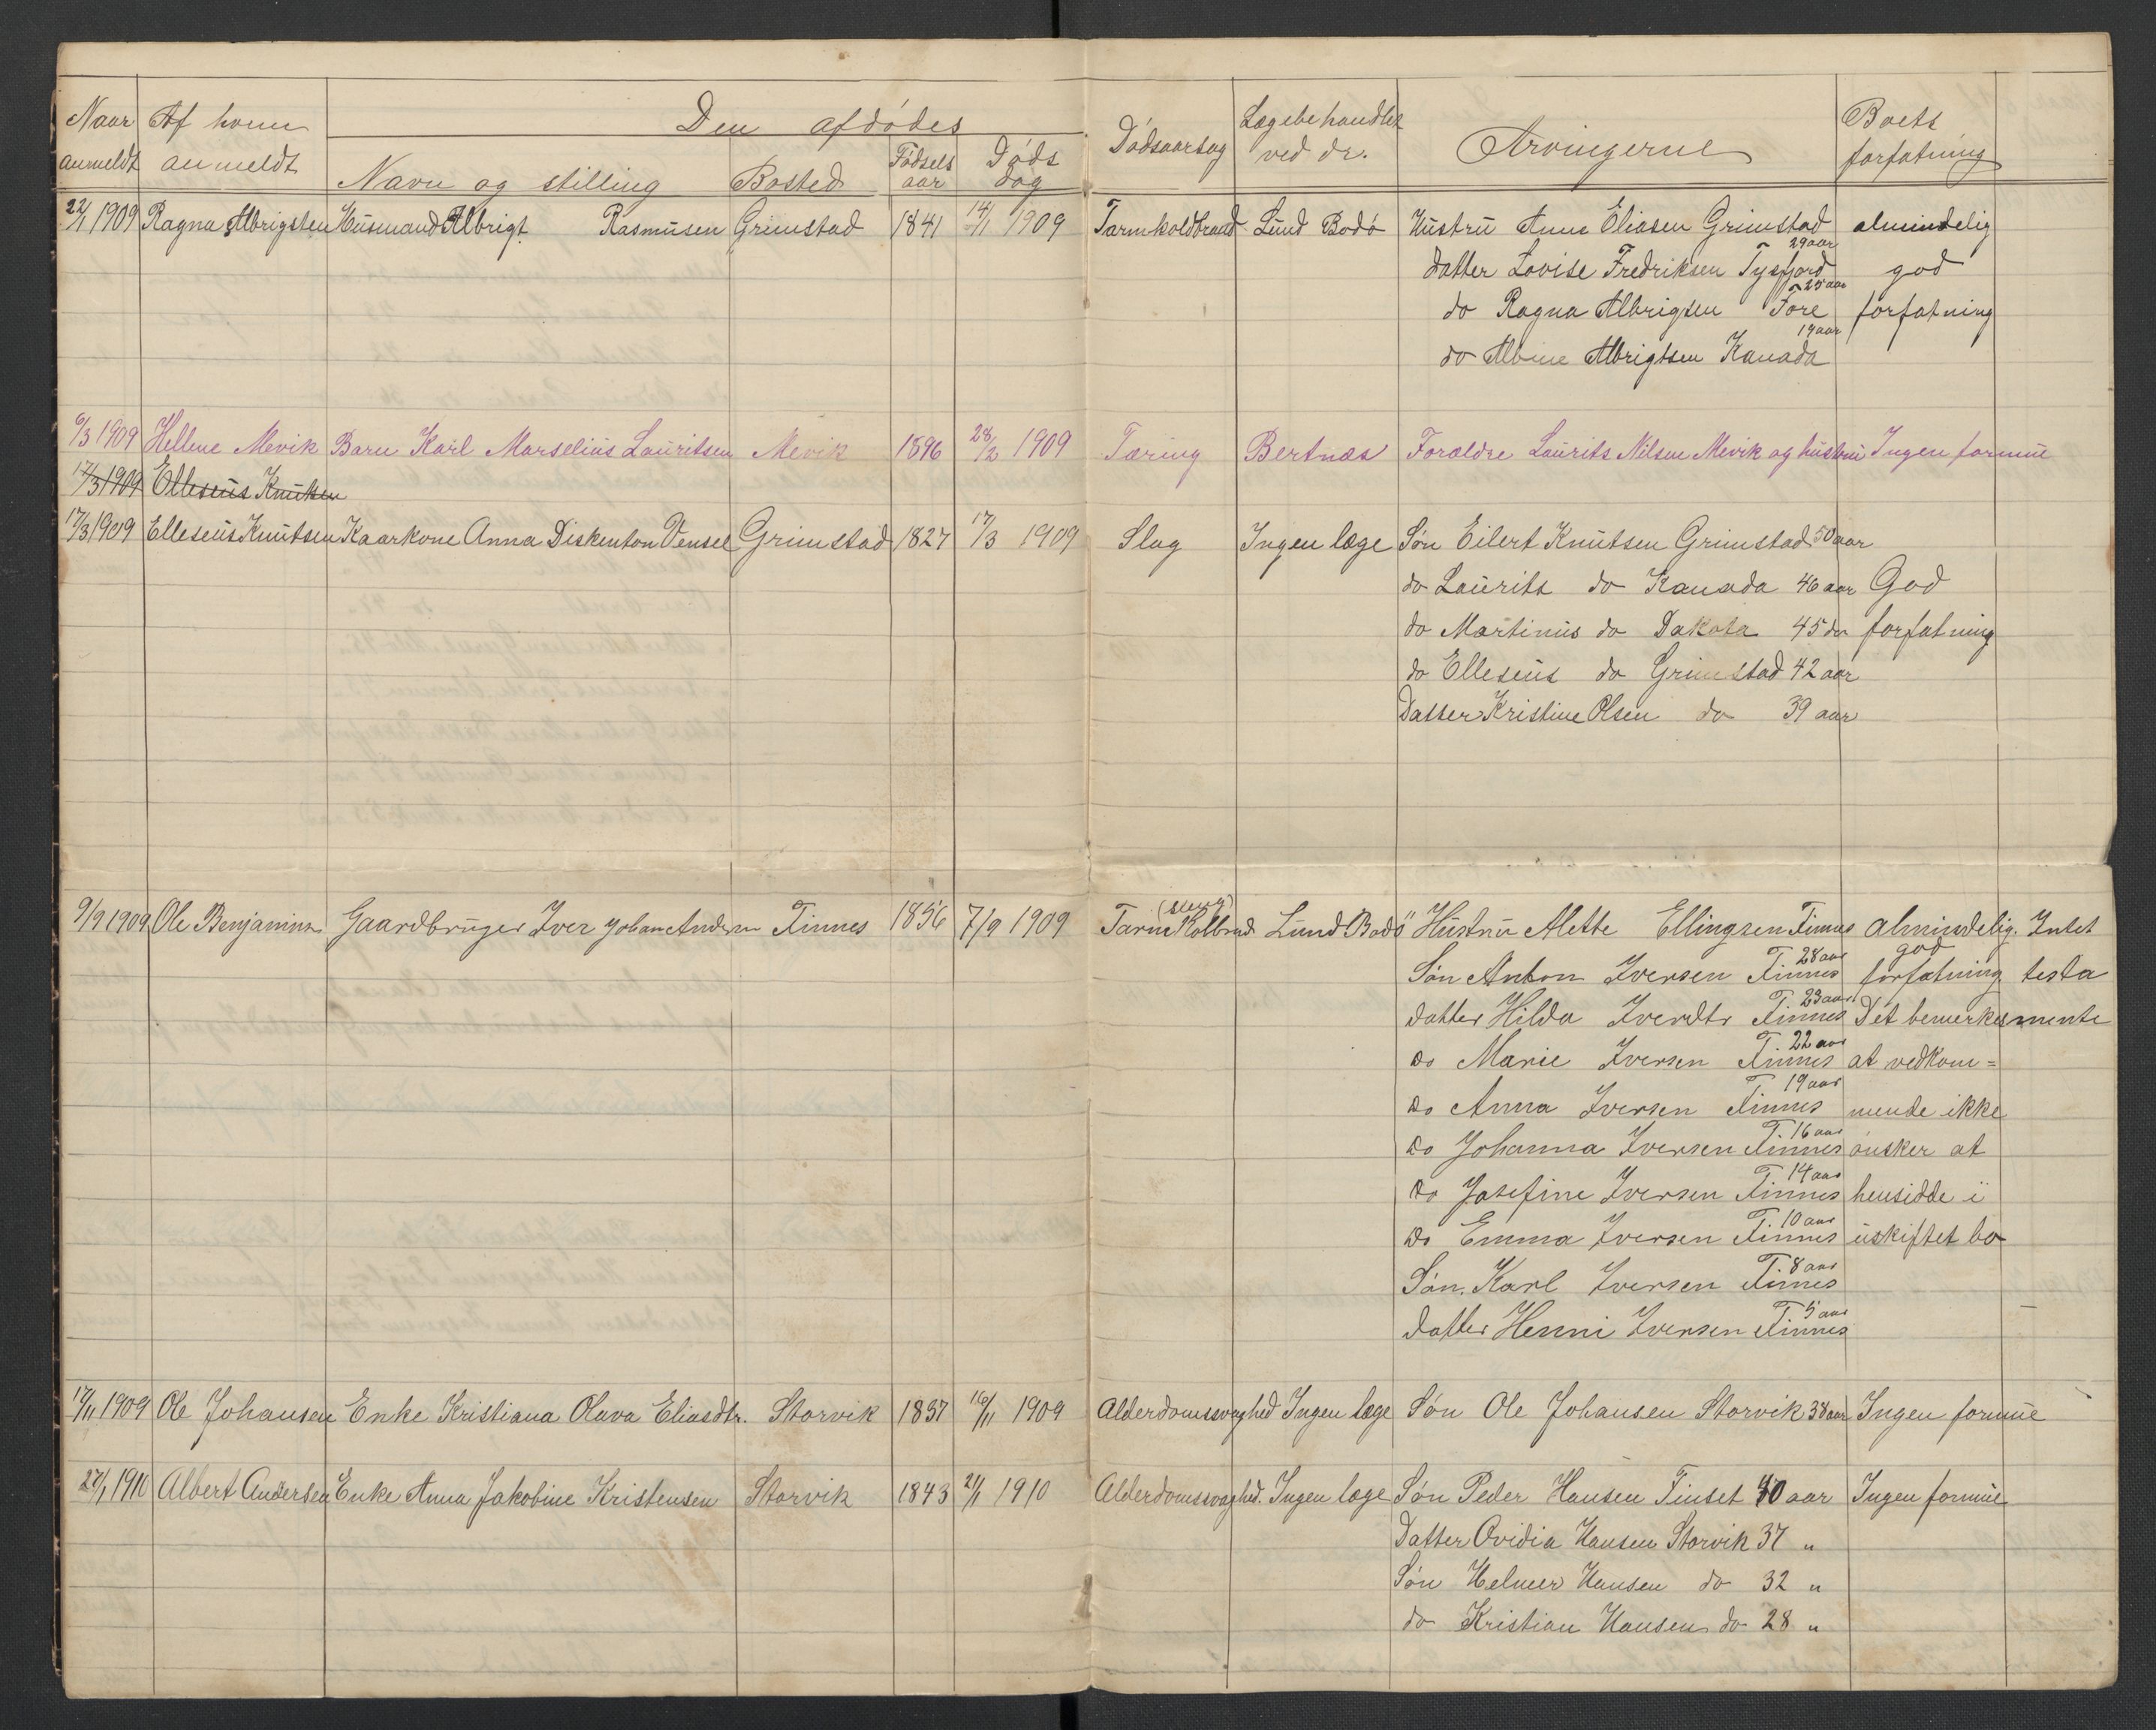 Naar anmeldt | Af hvem anmeldt | Den afdödes | Dödsaarsag | Lægebehandlet ved dr. | Arvingerne | Boets forfatning
Navn og stilling | Bosted | Födsels aar | Döds dag
22/1 1909 Ragna Albrigtsen Husmand Albrigt Rasmusen Grimstad 1841 14/1 1909 Tarmkoldbrand Lund Bodö Hustru Anna Eliasen Grimstad almindelig
datter Lovise Fredriksen Tysfjord 29 aar god
do Ragna Albrigsen Fore 25 aar forfatning
do Albine Albrigtsen Kanada 19 aar
6/3 1909 Hellene Mevik Barn Karl Marselius Lauritsen Mevik 1896 28/2 1909 Tæring Bertnæs Forældre Laurits Nilsen Mevik og hustru Ingen formue
17/3 1909 Elleseus Knutsen
17/3 1909 Elleseus Knutsen Kaarkone Anna Diskenton Vensel Grimstad 1827 17/3 1909 Slag Ingen læge Sön Eilert Knutsen Grimstad 50 aar
do Laurits do Kanada 46 aar God
do Martinus do Dakota 45 do forfatning
do Elleseus do Grimstad 42 aar
Datter Kristine Olsen do 39 aar
9/9 1909 Ole Benjamins. Gaardbruger Iver Johan Andersen Finnes 1856 7/9 1909 Tarm Kolbrand Lund Bodö Hustru Alette Ellingsen Finnes Almindelig. Intet
Sön Anton Iversen Finnes 28 aar god forfatning testa
datter Hilda Iverdtr Finnes 23 aar Det bemerkes mente
do Marie Iversen Finnes 22 aar at vedkom=
do Anna Iversen Finnes 19 aar mende ikke
do Johanna Iversen Finnes 16 aar önsker at
do Josefine Iversen Finnes 14 aar hensidde i
do Emma Iversen Finnes 10 aar uskiftet bo
Sön. Karl Iversen Finnes 8 aar
datter Henni Iversen Finnes 5 aar
17/11 1909 Ole Johansen Enke Kristiana Olava Eliasdtr. Storvik 1837 16/11 1909 Alderdomssvaghed Ingen læge Sön Ole Johansen Storvik 38 aar Ingen formue
27/1 1910 Albert Andersen Enke Anna Jakobine Kristensen Storvik 1843 21/1 1910 Alderdomssvaghed. Ingen læge Sön Peder Hansen Finset 40 aar Ingen formue
Datter Ovidia Hansen Storvik 37 "
Sön Helmer Hansen do 32 "
do Kristian Hansen do 28 "